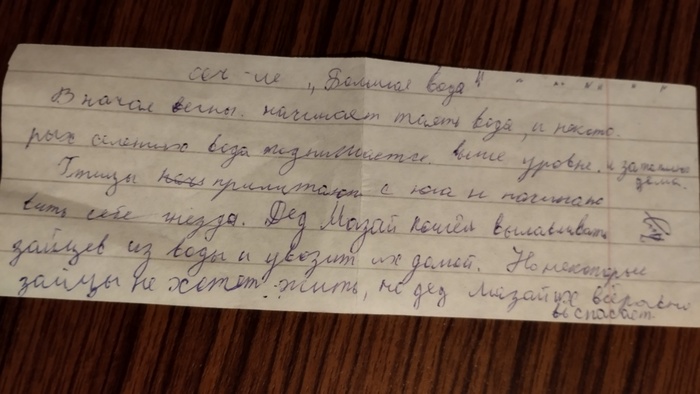 соч-ие „Большая вода"
В начале весны. начинает таять вода, и некото-
рых селениях вода поднимается. выше уровня. и
дома.
Птицы прилитают с юга и начинаю
вить себе гнёзда. Дед Мазай пошёл вылавливать
зайцев из воды и увозит их домой. Но некоторые
зайцы не хотят жить, но дед Мазай их всёравно
выспасает.